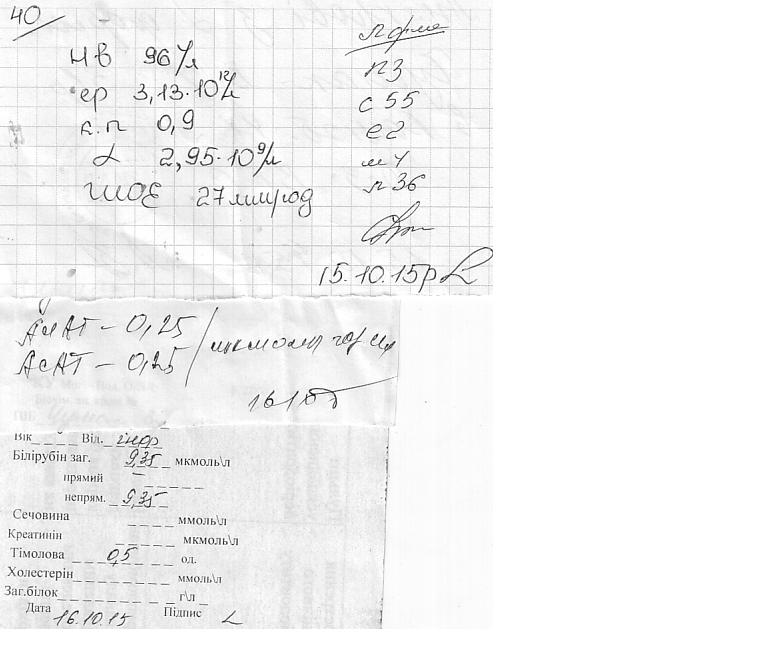 40
Нв 96 г/л
ер 3,13·10¹²/л
к.п 0,9
L 2,95·10⁹/л
ШОЕ 27 мм/год
п3
с 55
е2
м 4
л 36
15.10.15р
АлАТ – 0,25
АсАТ – 0,25
16/
Вік _ _ _ _ Від. _ інф _
Білірубін заг. 9,35 мкмоль\л
прямий –
непрям. 9,35
Сечовина _ _ _ _ ммоль\л
Креатинін _ _ _ _ _ мкмоль\л
Тімолова 0,5 од.
Холестерін _ _ _ _ _ _ _ ммоль\л
Заг.білок _ _ _ _ _ _ _ _ г\л _
Дата 16.10.15 Підпис